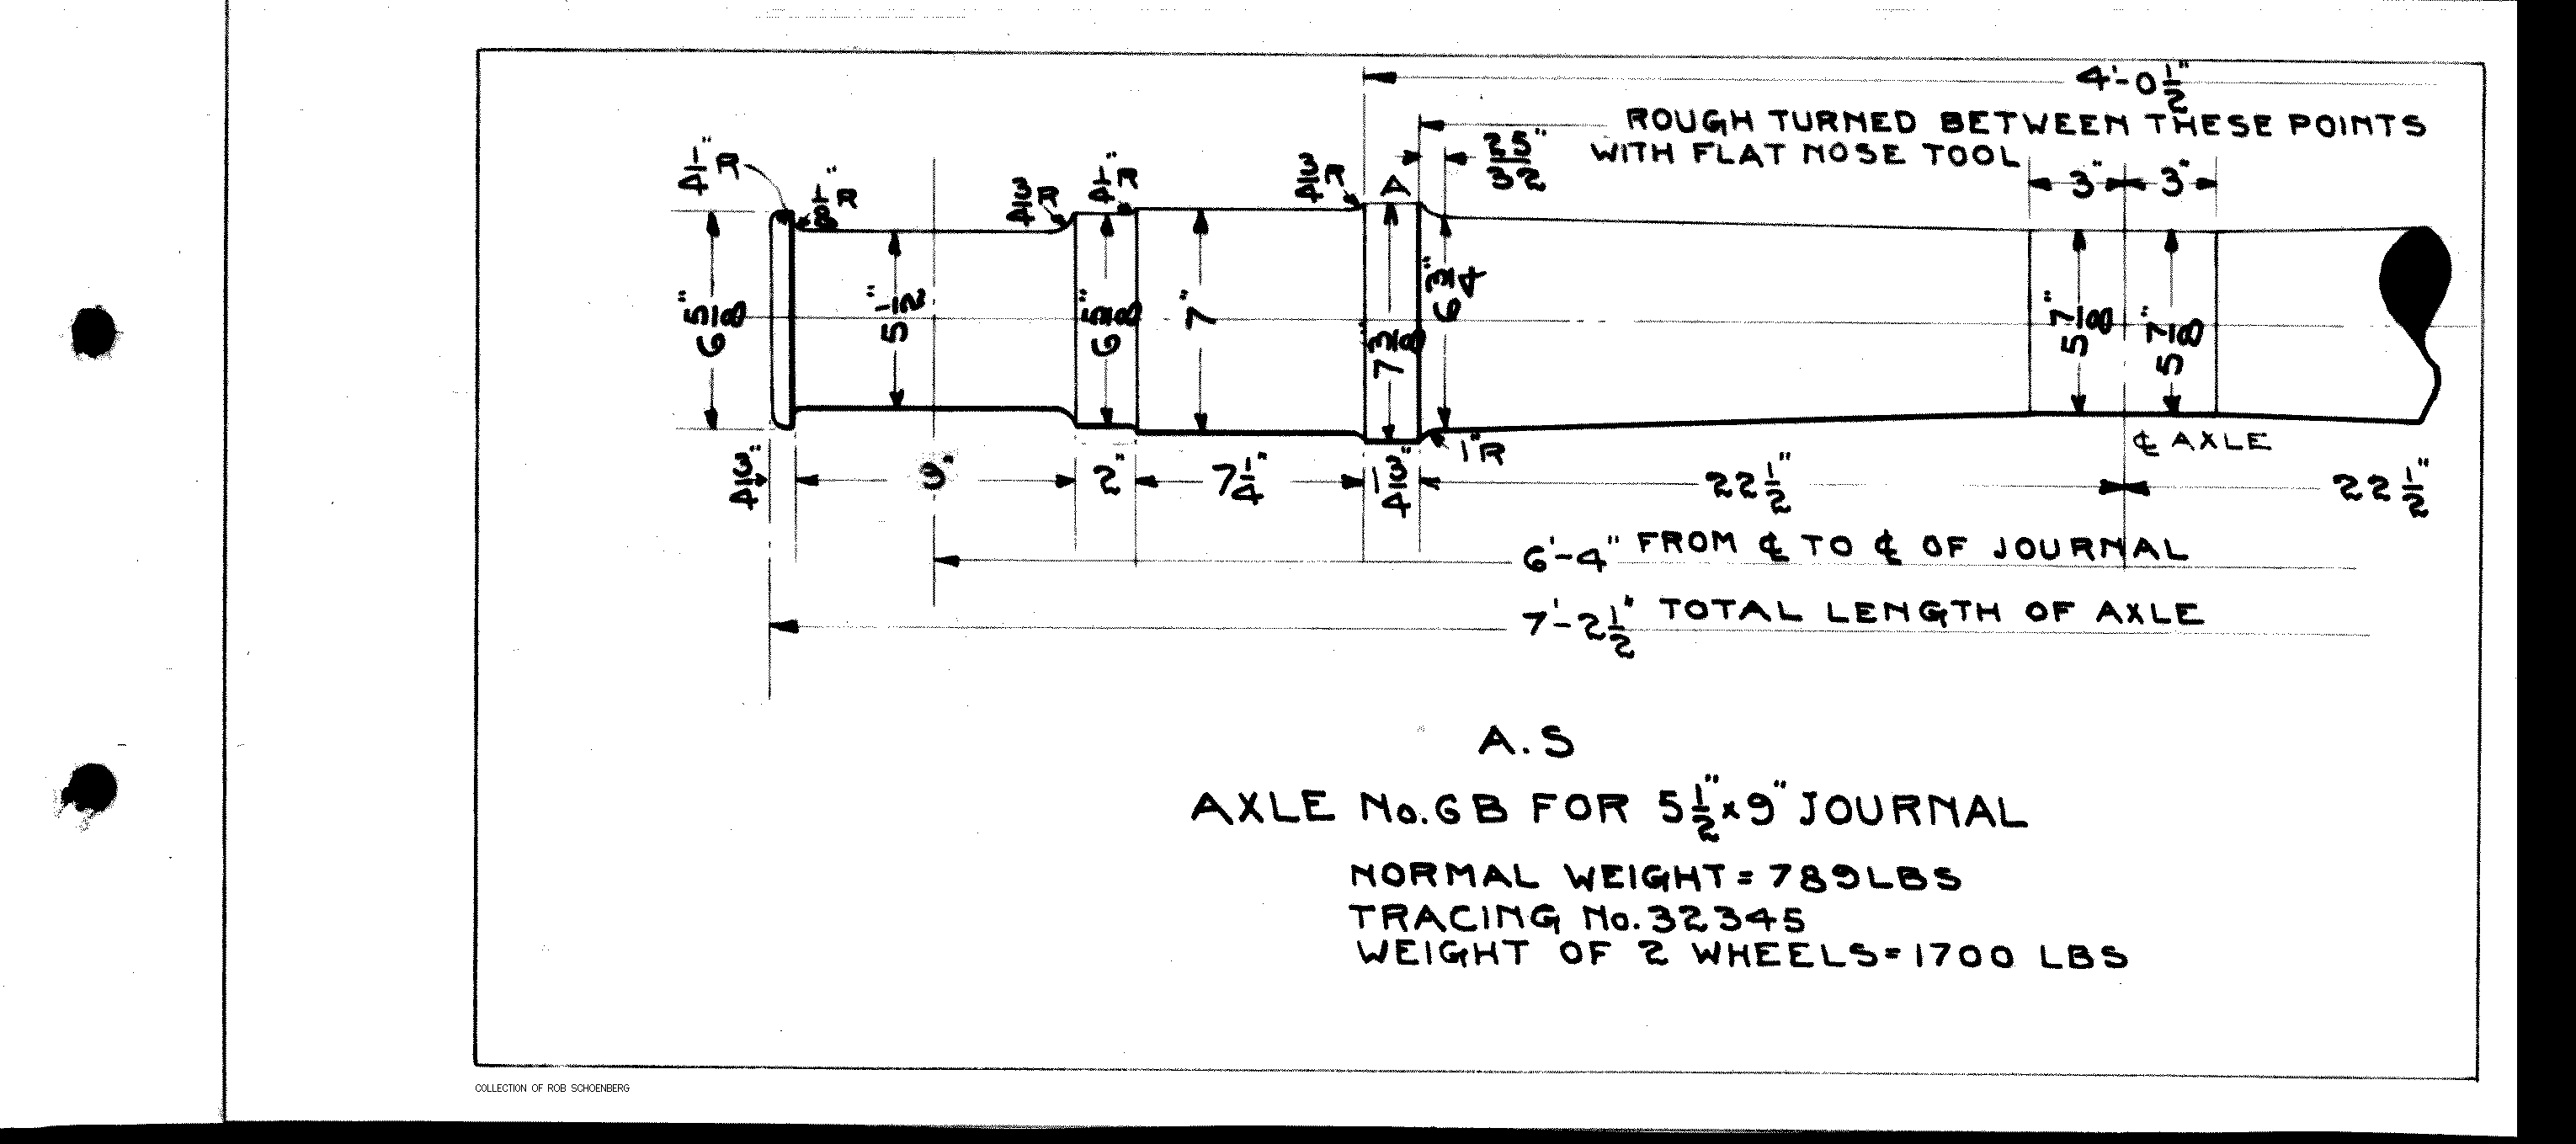 4'-0 1/2"
ROUGH TURNED BETWEEN THESE POINTS
WITH FLAT NOSE TOOL
25/32"
3" 3"
1/4" R
1/8" R
3/4 R
1/4" R
3/4 R
A
6 5/8"
5 1/2"
6 5/8"
7"
7 3/8"
6 3/4"
5 7/8"
5 7/8"
1" R
℄ AXLE
3/4"
9"
2"
7 1/4"
1 3/4"
22 1/2"
22 1/2"
6'-4" FROM ℄ TO ℄ OF JOURNAL
7'-2 1/2" TOTAL LENGTH OF AXLE
A.S
AXLE No. 6B FOR 5 1/2" x 9" JOURNAL
NORMAL WEIGHT = 789 LBS
TRACING No. 32345
WEIGHT OF 2 WHEELS = 1700 LBS
COLLECTION OF ROB SCHOENBERG